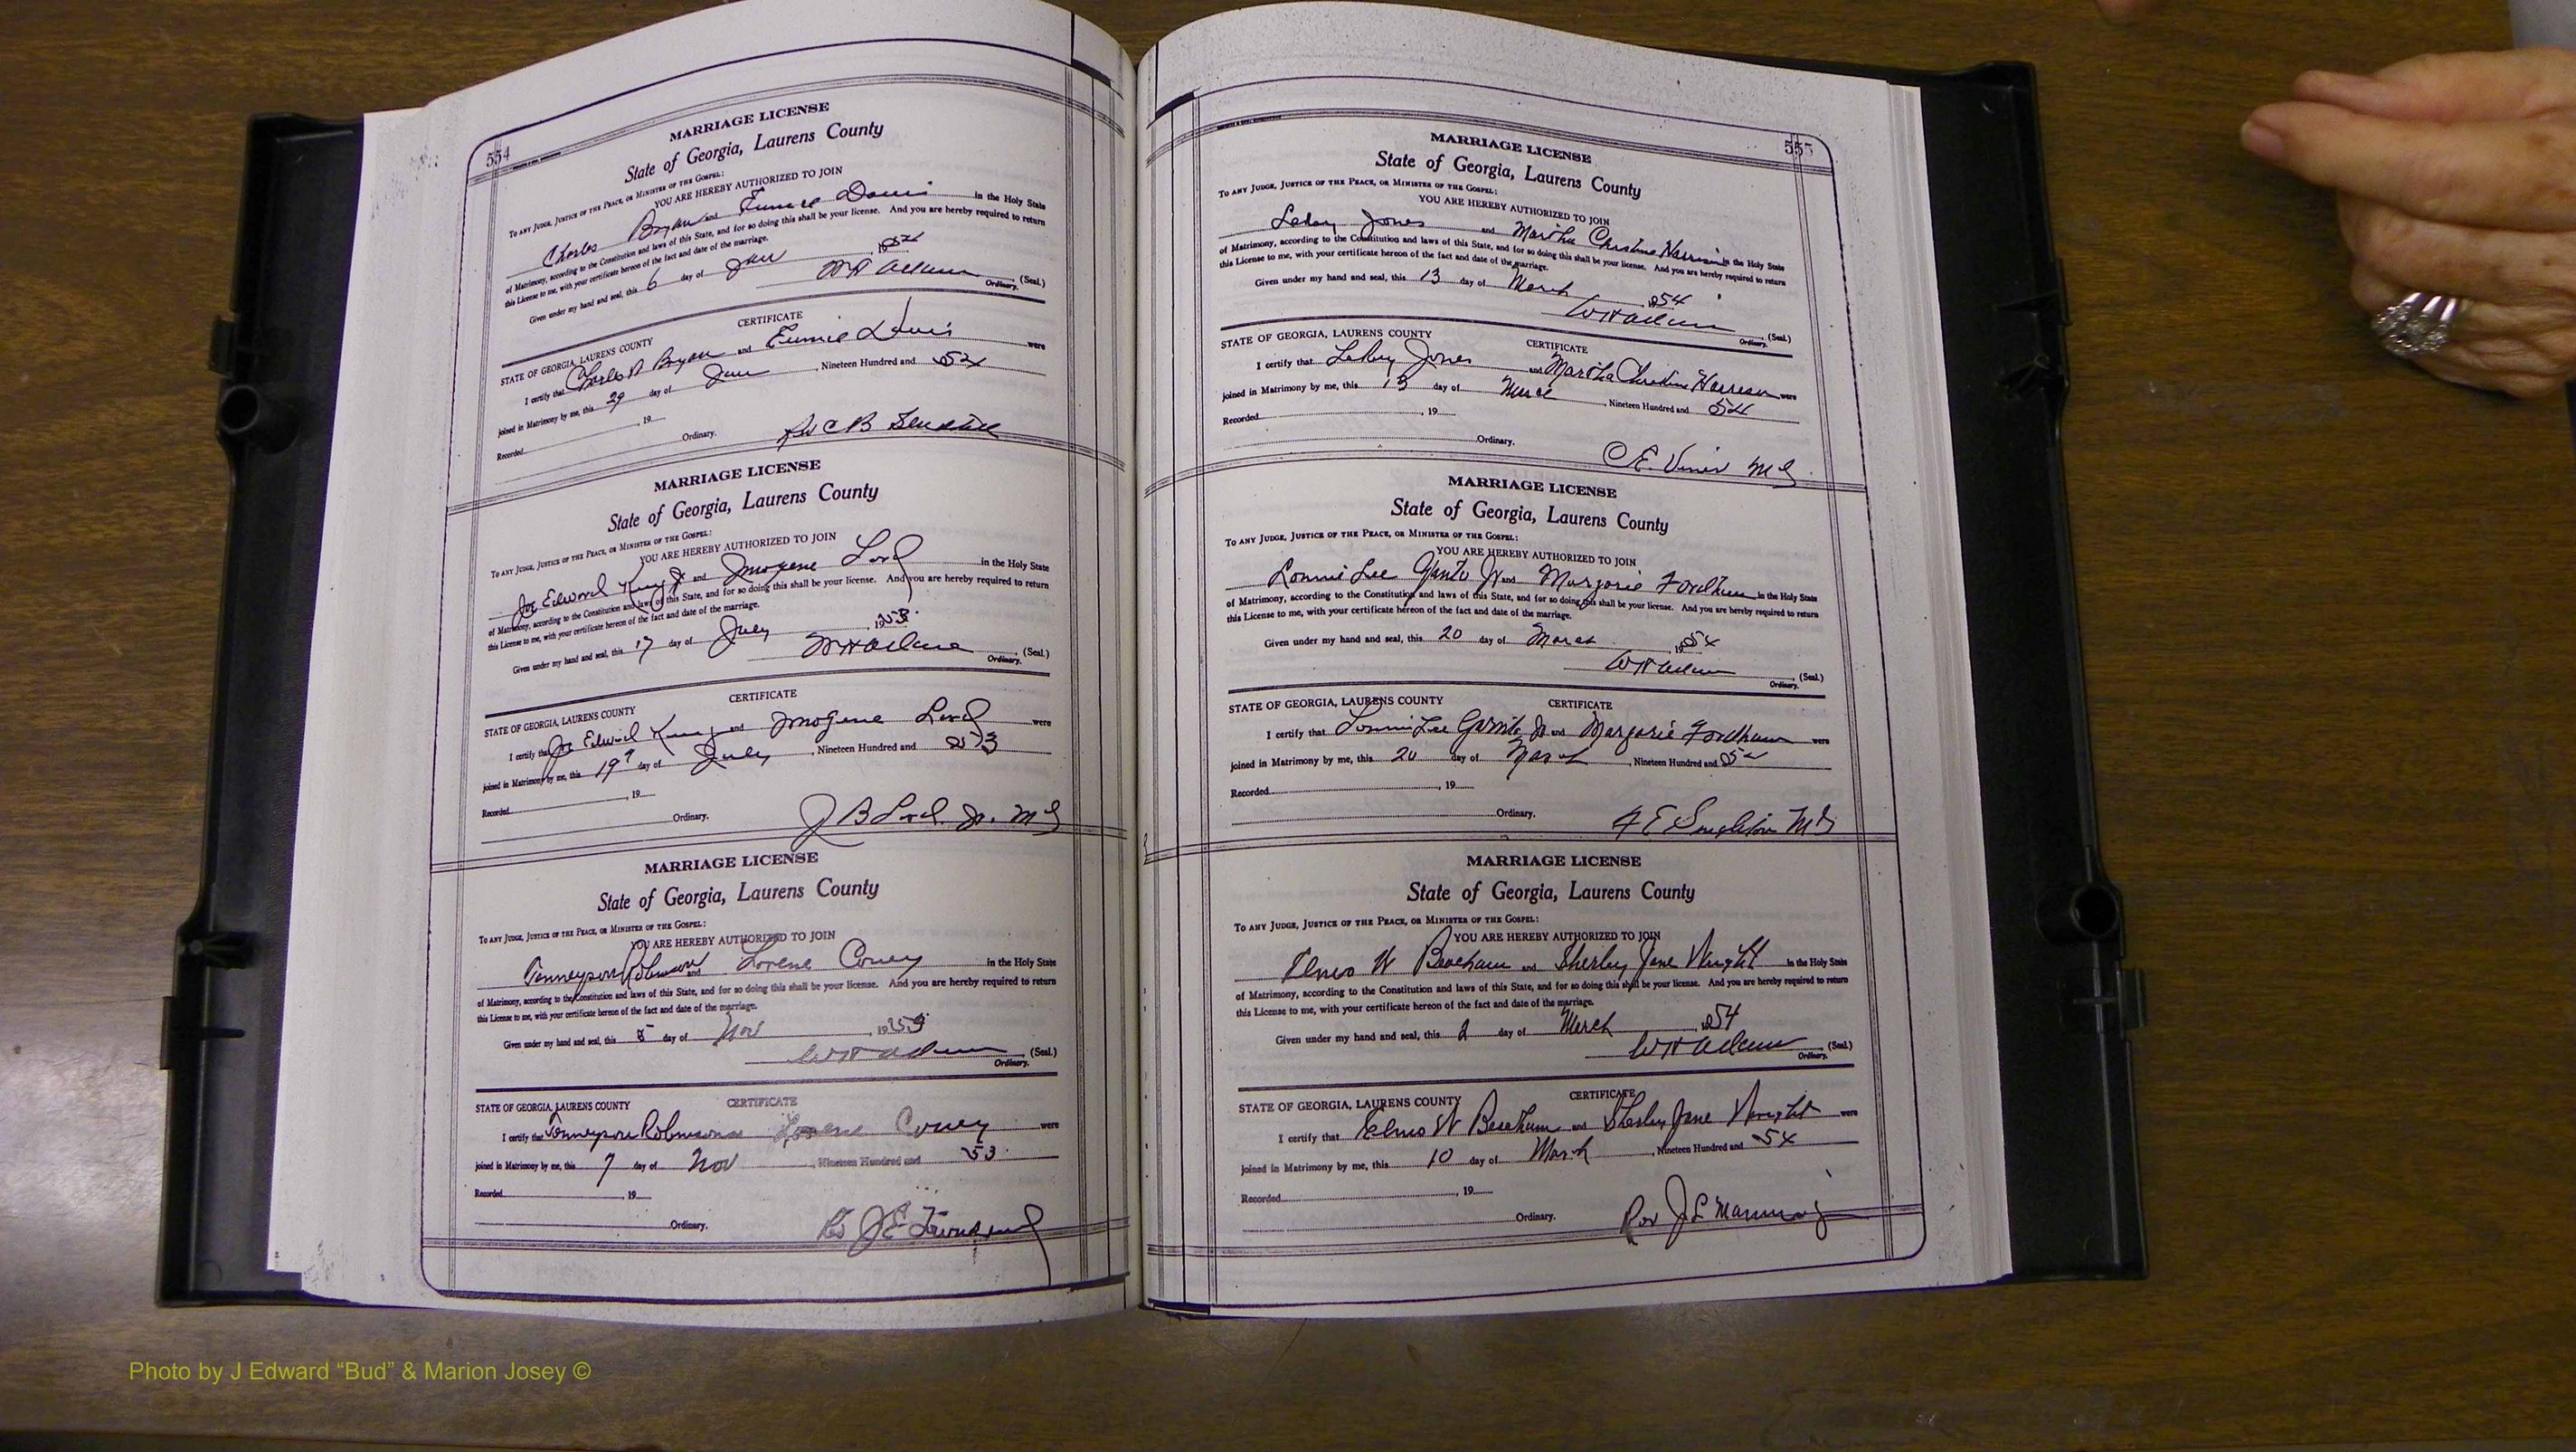 554
MARRIAGE LICENSE
State of Georgia, Laurens County
To any Judge, Justice of the Peace, or Minister of the Gospel:
YOU ARE HEREBY AUTHORIZED TO JOIN
Charles Bryan and Eunice Davis in the Holy State
of Matrimony, according to the Constitution and laws of this State, and for so doing this shall be your license. And you are hereby required to return
this License to me, with your certificate hereon of the fact and date of the marriage.
Given under my hand and seal, this 6 day of Jan
(Seal.)
Ordinary.
CERTIFICATE
STATE OF GEORGIA, LAURENS COUNTY
I certify that Charles Bryan and Eunice Davis were
joined in Matrimony by me, this 29 day of Nineteen Hundred and
Recorded , 19
Ordinary. Rev C B
MARRIAGE LICENSE
State of Georgia, Laurens County
To any Judge, Justice of the Peace, or Minister of the Gospel:
YOU ARE HEREBY AUTHORIZED TO JOIN
Joe Edward King Jr and Imogene Lord in the Holy State
of Matrimony, according to the Constitution and laws of this State, and for so doing this shall be your license. And you are hereby required to return
this License to me, with your certificate hereon of the fact and date of the marriage.
Given under my hand and seal, this 17 day of July , 1953
(Seal.)
Ordinary.
CERTIFICATE
STATE OF GEORGIA, LAURENS COUNTY
I certify that Joe Edward King and Imogene Lord were
joined in Matrimony by me, this 19 day of July , Nineteen Hundred and 53
Recorded , 19
Ordinary. J B Lord. Jr. M G
MARRIAGE LICENSE
State of Georgia, Laurens County
To any Judge, Justice of the Peace, or Minister of the Gospel:
YOU ARE HEREBY AUTHORIZED TO JOIN
Tenneyson Robinson and Lorene Coney in the Holy State
of Matrimony, according to the Constitution and laws of this State, and for so doing this shall be your license. And you are hereby required to return
this License to me, with your certificate hereon of the fact and date of the marriage.
Given under my hand and seal, this 5 day of Nov , 1953
(Seal.)
Ordinary.
STATE OF GEORGIA, LAURENS COUNTY CERTIFICATE
I certify that Tenneyson Robinson Lorene Coney were
joined in Matrimony by me, this 7 day of Nov , Nineteen Hundred and 53
Recorded , 19
Ordinary. J E
555
MARRIAGE LICENSE
State of Georgia, Laurens County
To any Judge, Justice of the Peace, or Minister of the Gospel:
YOU ARE HEREBY AUTHORIZED TO JOIN
Leroy Jones and Martha Christine Harrison in the Holy State
of Matrimony, according to the Constitution and laws of this State, and for so doing this shall be your license. And you are hereby required to return
this License to me, with your certificate hereon of the fact and date of the marriage.
Given under my hand and seal, this 13 day of March , 1954
(Seal.)
Ordinary.
STATE OF GEORGIA, LAURENS COUNTY CERTIFICATE
I certify that Leroy Jones and Martha Christine Harrison were
joined in Matrimony by me, this 13 day of March , Nineteen Hundred and 54
Recorded , 19
Ordinary.
C E M G
MARRIAGE LICENSE
State of Georgia, Laurens County
To any Judge, Justice of the Peace, or Minister of the Gospel:
YOU ARE HEREBY AUTHORIZED TO JOIN
Lonnie Lee Jr and Marjorie Fordham in the Holy State
of Matrimony, according to the Constitution and laws of this State, and for so doing this shall be your license. And you are hereby required to return
this License to me, with your certificate hereon of the fact and date of the marriage.
Given under my hand and seal, this 20 day of March , 1954
(Seal.)
Ordinary.
STATE OF GEORGIA, LAURENS COUNTY CERTIFICATE
I certify that Lonnie Lee Jr and Marjorie Fordham were
joined in Matrimony by me, this 20 day of March , Nineteen Hundred and 54
Recorded , 19
Ordinary. E Singleton M G
MARRIAGE LICENSE
State of Georgia, Laurens County
To any Judge, Justice of the Peace, or Minister of the Gospel:
YOU ARE HEREBY AUTHORIZED TO JOIN
Elmo W Beacham and Sherley Jane Wright in the Holy State
of Matrimony, according to the Constitution and laws of this State, and for so doing this shall be your license. And you are hereby required to return
this License to me, with your certificate hereon of the fact and date of the marriage.
Given under my hand and seal, this 2 day of March , 1954
(Seal.)
Ordinary.
STATE OF GEORGIA, LAURENS COUNTY CERTIFICATE
I certify that Elmo W Beacham and Sherley Jane Wright were
joined in Matrimony by me, this 10 day of March , Nineteen Hundred and 54
Recorded , 19
Ordinary. Rev J L Manning
Photo by J Edward “Bud” & Marion Josey ©